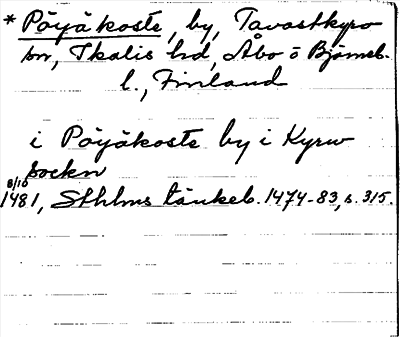 * Pöyäkoste, by, Tavastkyro
sn, Ikalis hd, Åbo o Björneb.
l., Finland
i Pöyäkoste by i Kyrw
sockn
8/10
1481, Sthlms tänkeb. 1474-83, s. 315.